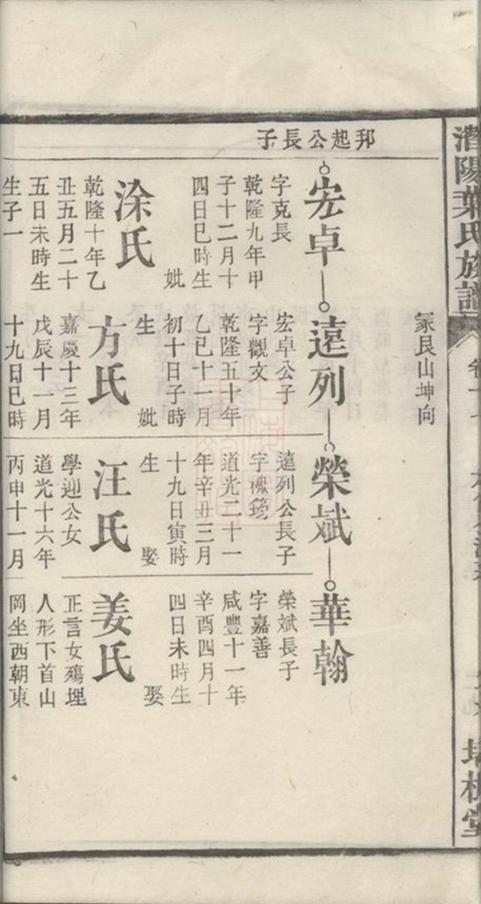 陽葉氏族譜
冢艮山坤向
邦起公長子
宏卓
字克長
乾隆九年甲
子十二月十
四日巳時生
妣
涂氏
乾隆十年乙
丑五月二十
五日未時生
生子一
遠列
宏卓公子
字觀文
乾隆五十年
乙巳十一月
初十日子時
生
妣
方氏
嘉慶十三年
戊辰十一月
十九日巳時
榮斌
遠列公長子
字
道光二十一
年辛丑三月
十九日寅時
生
娶
汪氏
學迎公女
道光十六年
丙申十一月
華翰
榮斌長子
字嘉善
咸豐十一年
辛酉四月十
四日未時生
娶
姜氏
正言女殤埋
人形下首山
岡坐西朝東